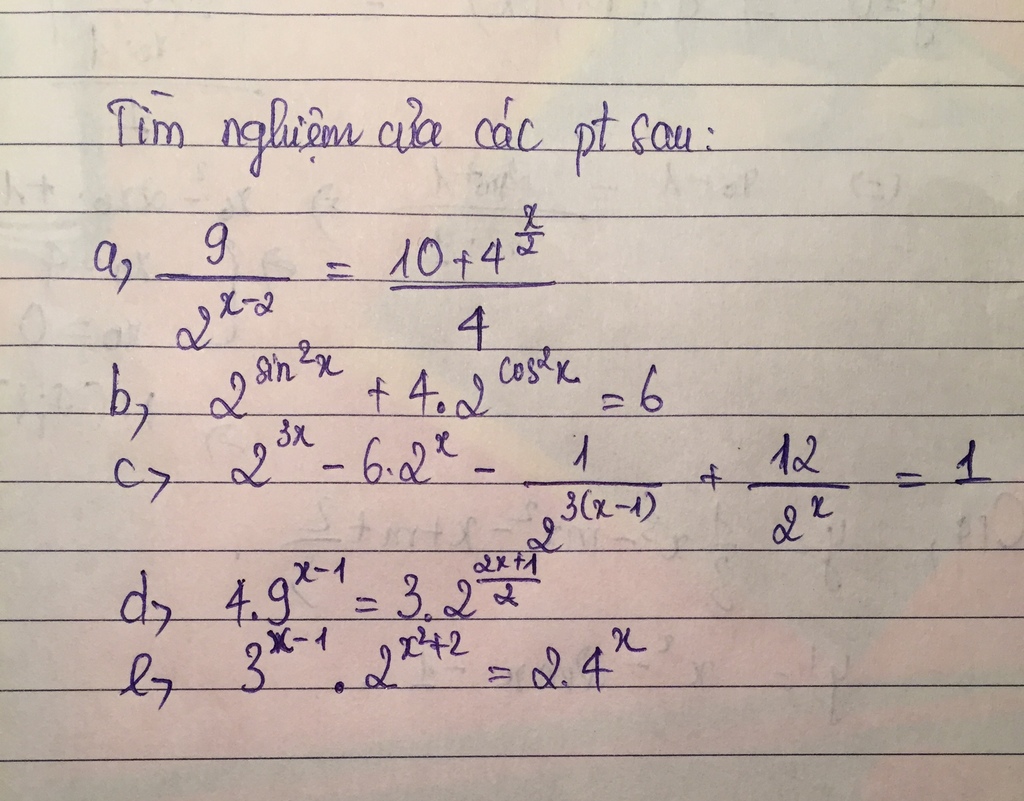 Tìm nghiệm của các pt sau:
a, 9 / 2^(x-2) = (10 + 4^(x/2)) / 4
b, 2^(sin^2 x) + 4.2^(cos^2 x) = 6
c, 2^(3x) - 6.2^x - 1 / 2^(3(x-1)) + 12 / 2^x = 1
d, 4.9^(x-1) = 3.2^((2x+1)/2)
e, 3^(x-1) . 2^(x^2+2) = 2.4^x